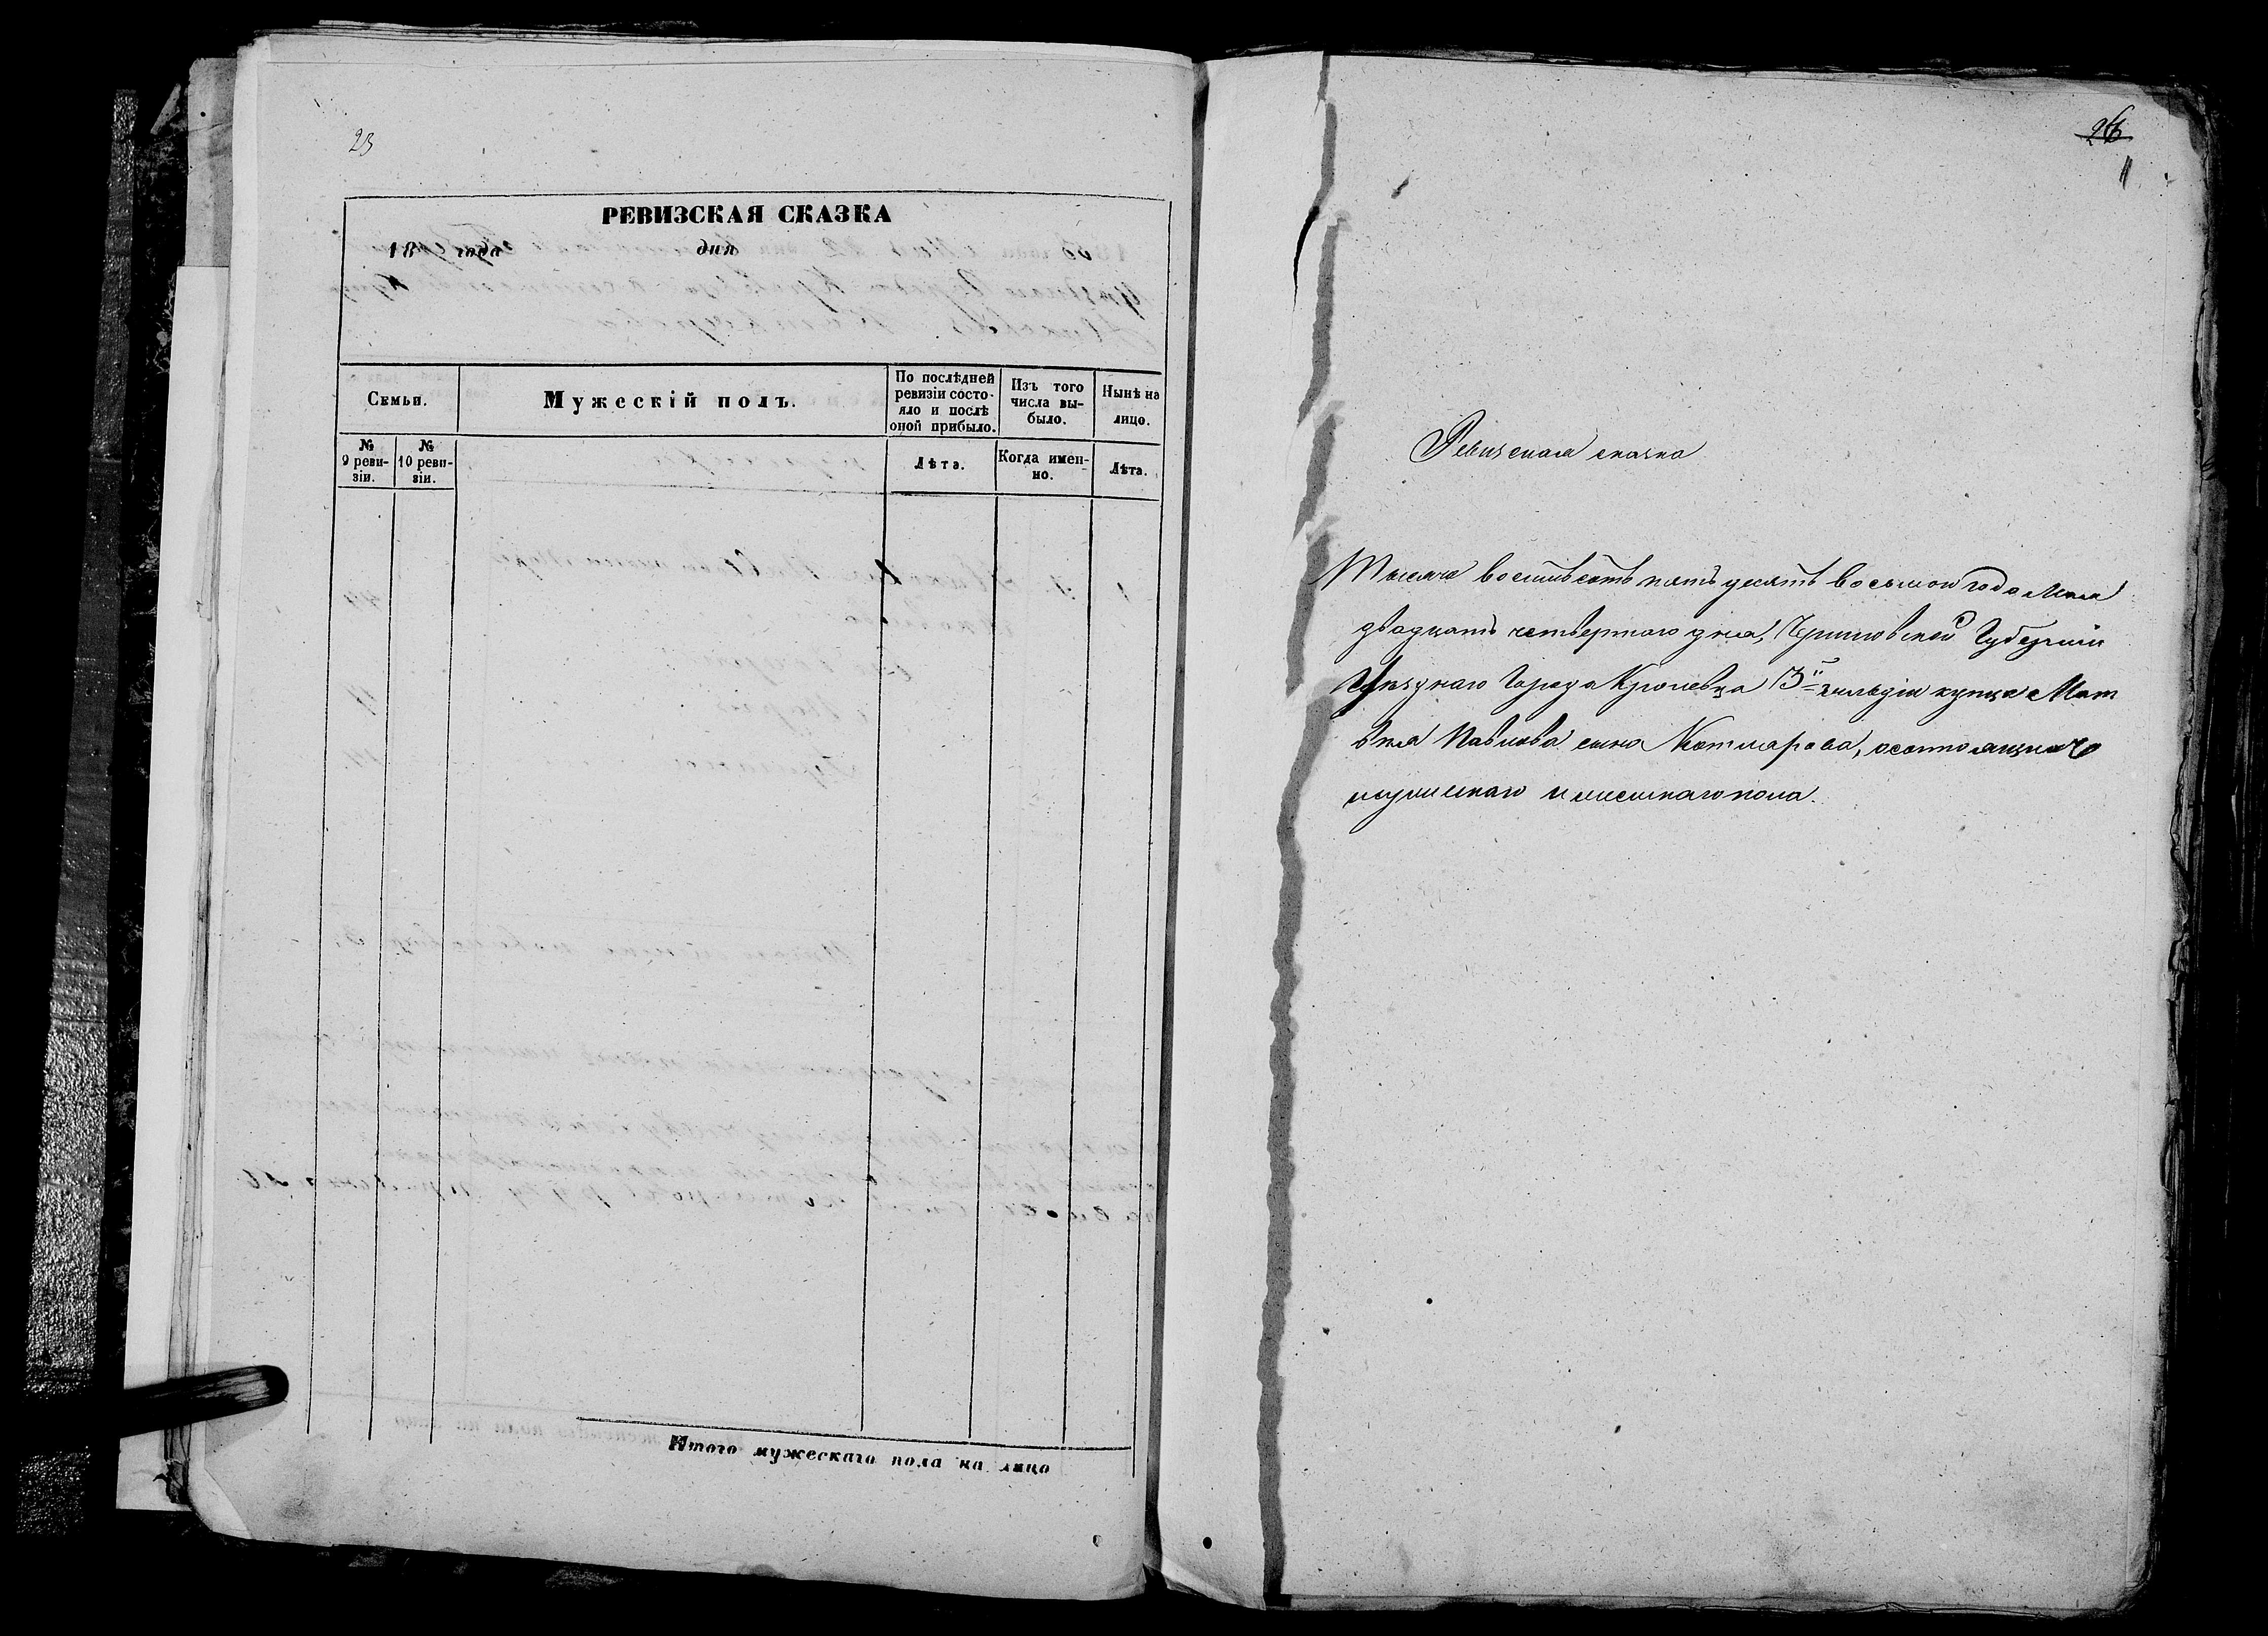 23
РЕВИЗСКАЯ СКАЗКА
18 года дня
Семьи.
Мужескій полъ.
По послѣдней ревизіи состо-
яло и послѣ оной прибыло.
Изъ того числа вы-
было.
Нынѣ на лицо.
№ 9 реви-
зіи.
№ 10 реви-
зіи.
Лѣта.
Когда имен-
но.
Лѣта.
Итого мужескаго пола на лицо
26
11
Ревизская сказка
Тысяча восемьсотъ пятьдесятъ восьмого года Мая
двадцать четвертаго дня, Черниговской Губерніи
Уѣзднаго Города Кролевца 3й гильдіи купца Мат
вѣя Павлова сына Котлярова, осостоящихъ
мужескаго и женскаго пола.